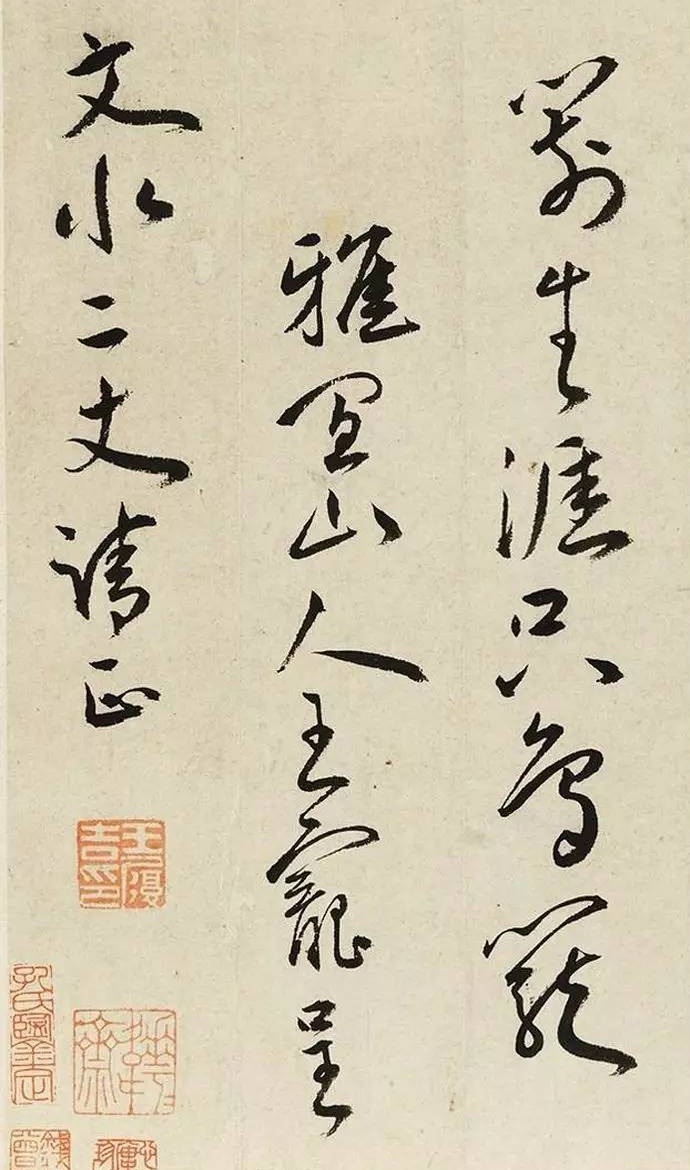 生涯只鳥籠
雅宜山人王寵呈
文水二丈請正
王履吉印